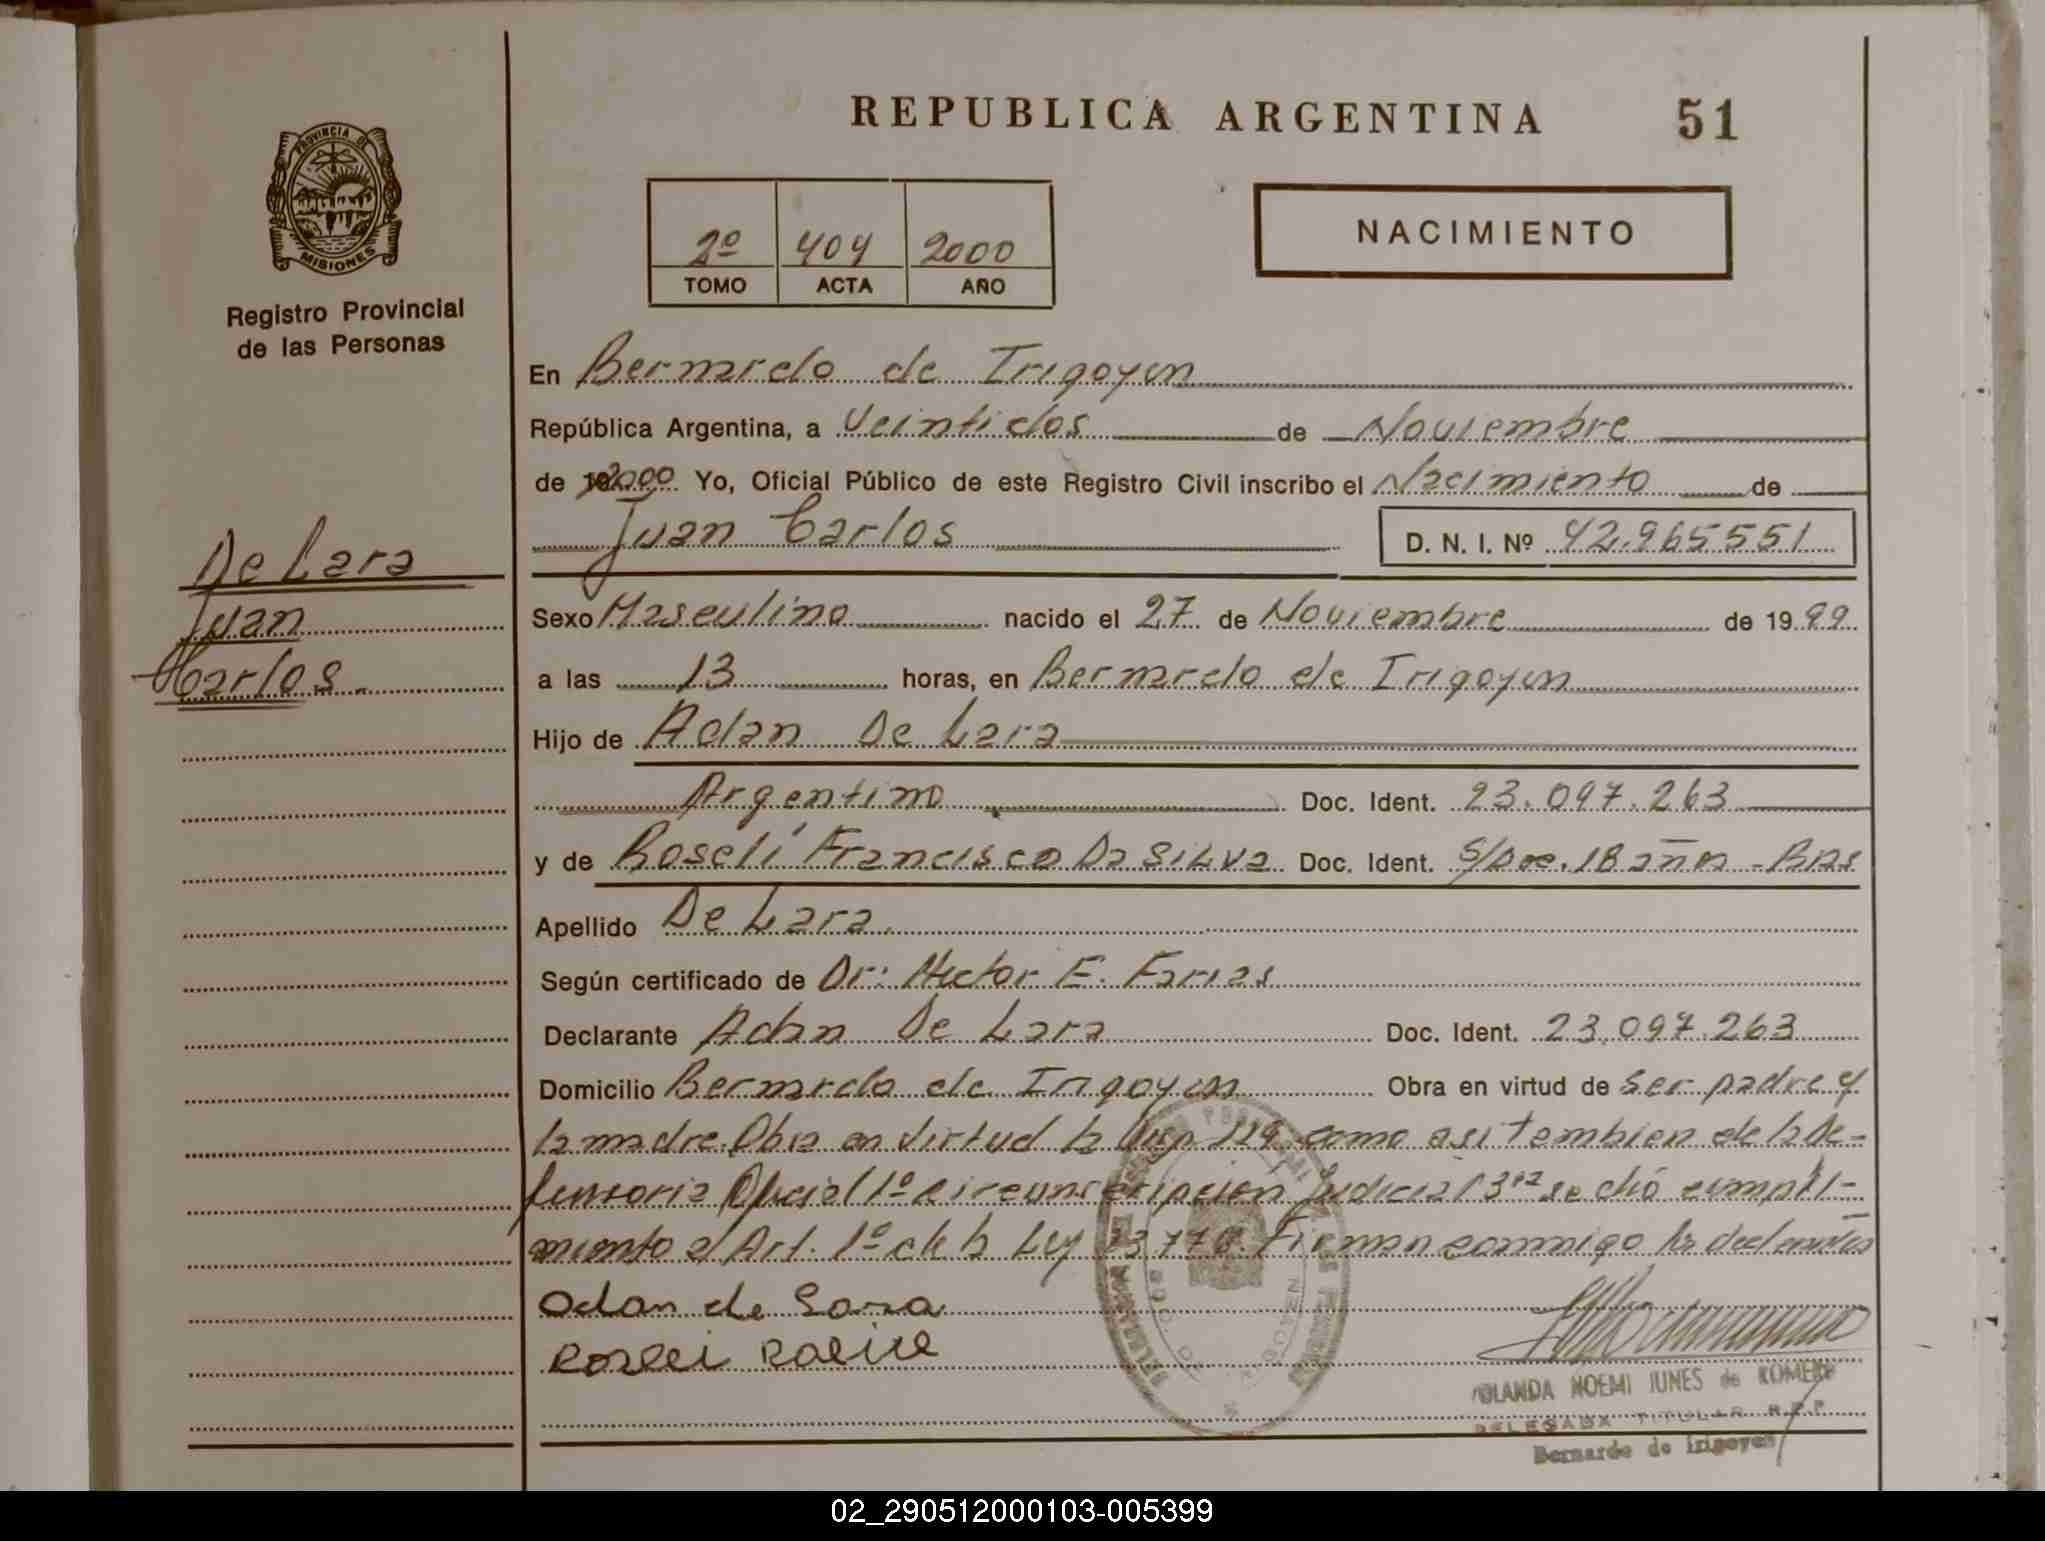 REPUBLICA ARGENTINA 51
PROVINCIA DE
MISIONES
Registro Provincial
de las Personas
2º 404 2000
TOMO ACTA AÑO
NACIMIENTO
En Bernardo de Irigoyen
República Argentina, a Veintidos de Noviembre
de 2000 Yo, Oficial Público de este Registro Civil inscribo el Nacimiento de
Juan Carlos D. N. I. Nº 42.965551
De Lara
Juan
Carlos.
Sexo Masculino nacido el 27 de Noviembre de 1999
a las 13 horas, en Bernardo de Irigoyen
Hijo de Adan De Lara
Argentino Doc. Ident. 23.097.263
y de Roselí Francisca Da Silva Doc. Ident. S/Doc. 18 años - Bras
Apellido De Lara.
Según certificado de Dr: Hector E. Farias
Declarante Adan De Lara Doc. Ident. 23.097.263
Domicilio Bernardo de Irigoyen Obra en virtud de ser padre y
la madre. Obra en virtud la como asi tambien de la De-
fensoria Oficial 1º circunscripcion Judicial 3ra se dió cumpli-
miento al Art. 1º de la Ley Firman conmigo los declarantes
Adan de Lara
Roseli
YOLANDA NOEMI IUNES de ROMERO
DELEGADA TITULAR R.P.P.
Bernardo de Irigoyen
02_290512000103-005399